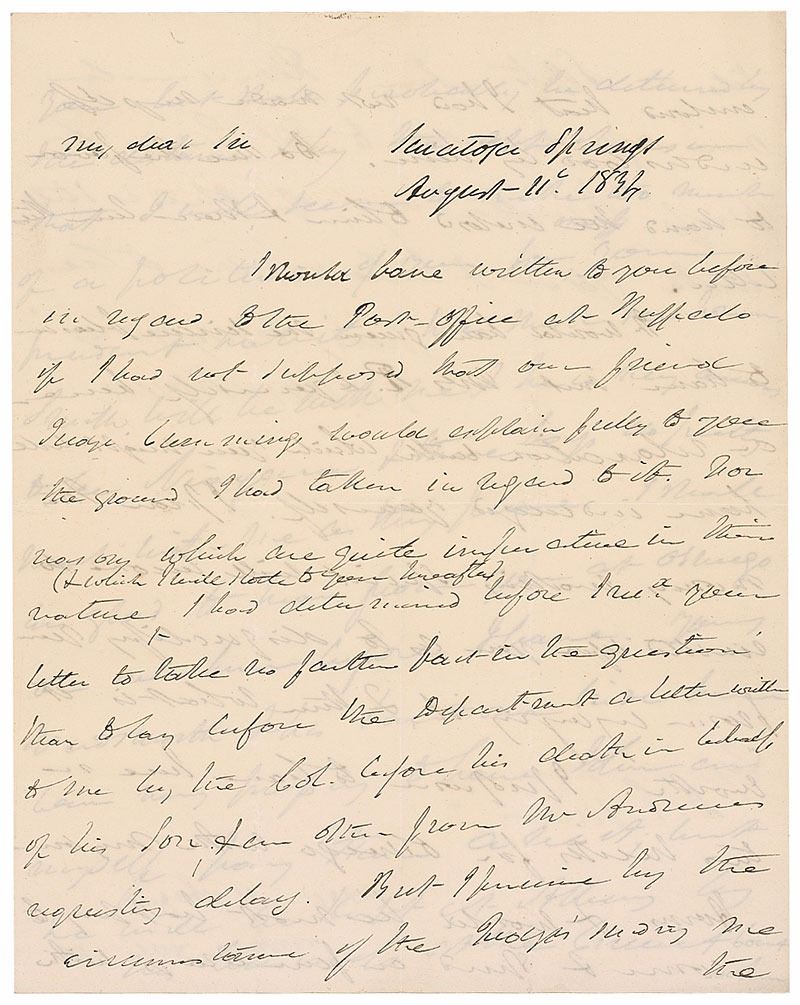 My dear Sir
Saratoga Springs
August 11th 1834
I would have written to you before
in regard to the Post-Office at Buffaloe
if I had not supposed that our friend
Judge would explain fully to you
the ground I had taken in regard to it. For
reasons which are quite imperative in their
(& which I will state to you hereafter)
nature I had determined before I recd your
letter to take no further part in the question
than to lay before the Department a letter written
to me by the Col. before his death in behalf
of his Son, & an other from Mr Andrews
requesting delay. But I presume by the
circumstance of the Judge's me
the